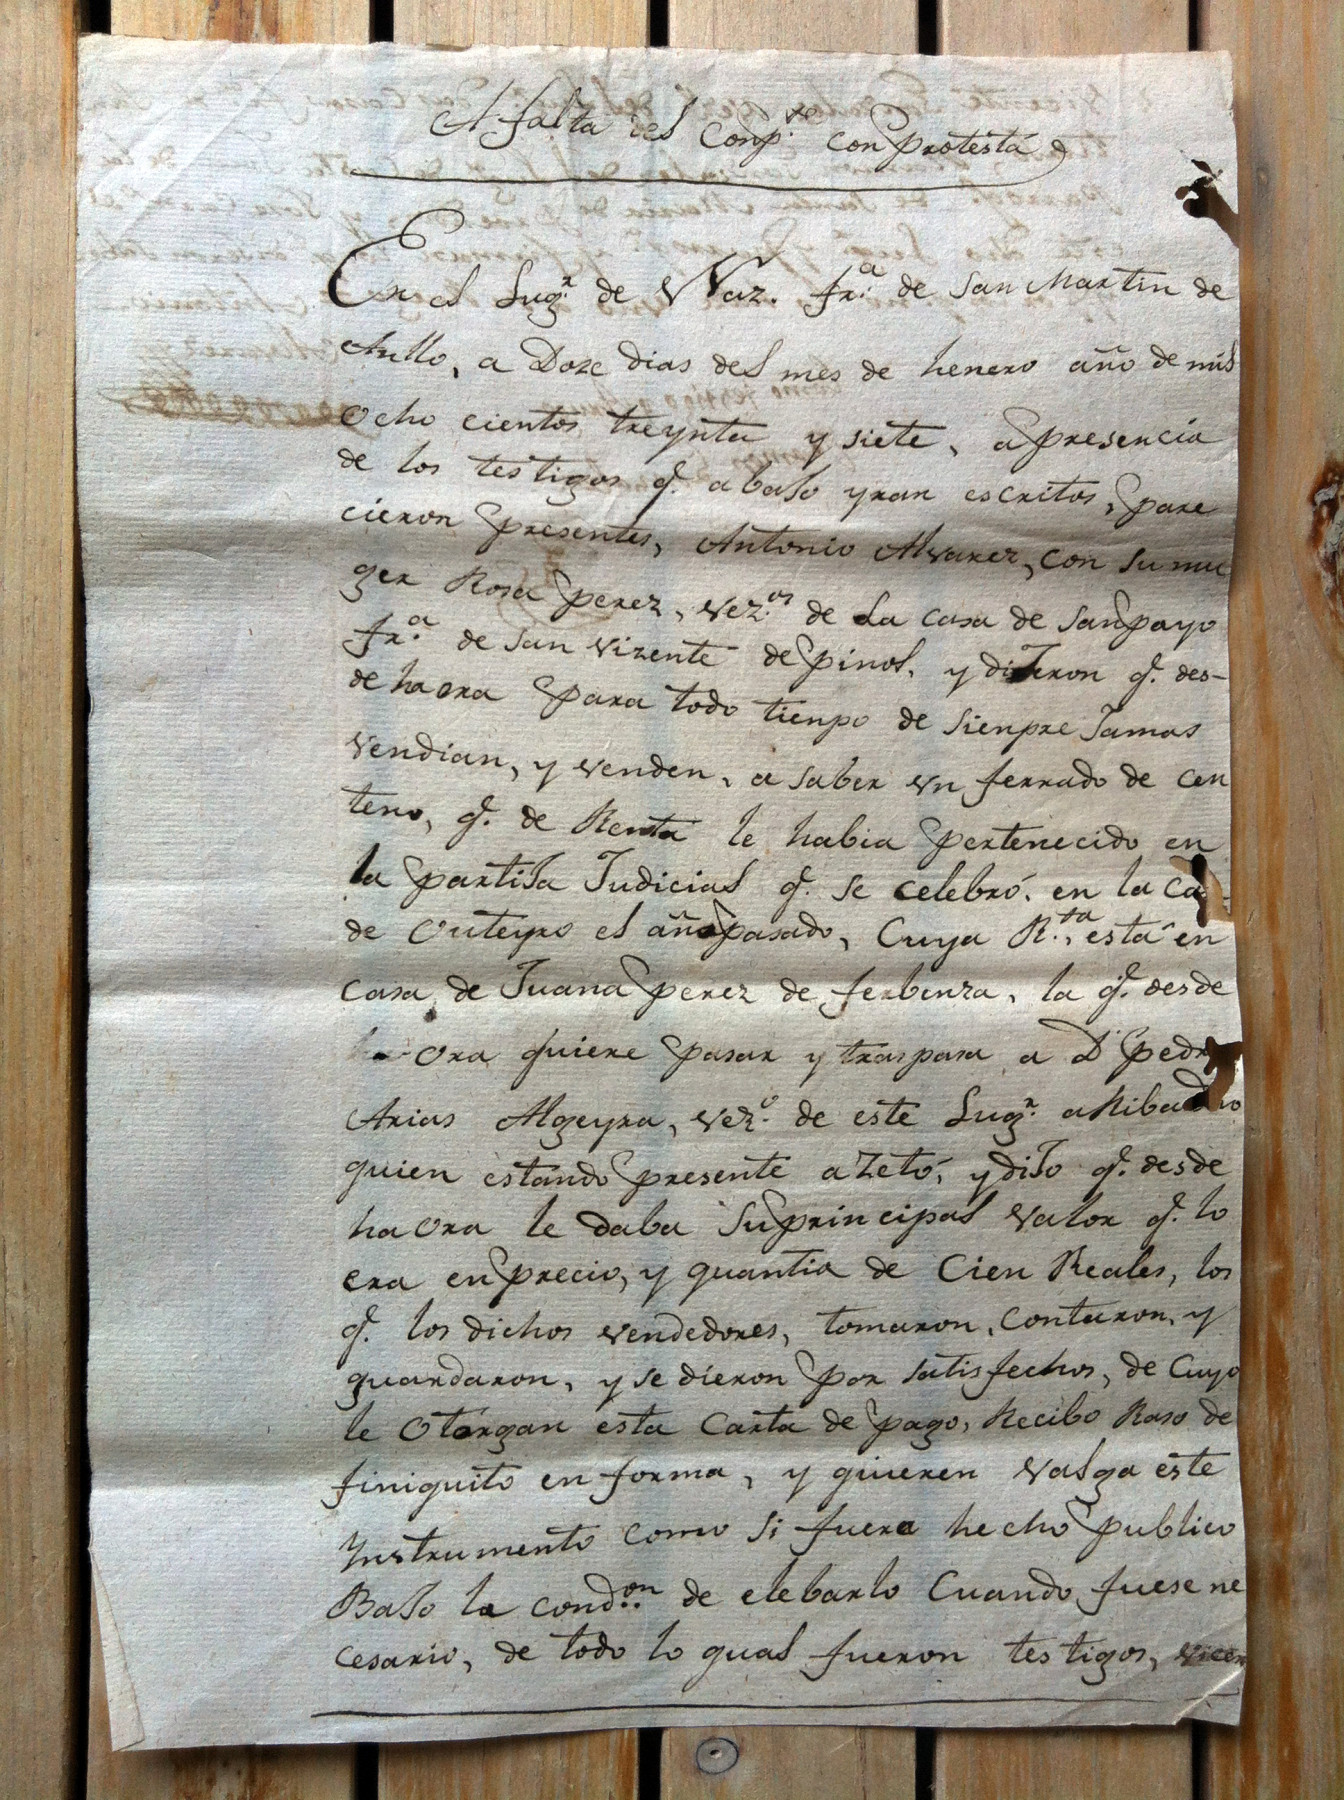 A falta del Conp.te con protesta
En el Lug.r de Vaz. fr.a de San Martin de
Anllo, a Doze dias del mes de henero año de mil
ocho cientos treynta y siete, a presencia
de los testigos q.e abaJo yran escritos, pare
cieron presentes, Antonio Alvarez, con su mu
ger Rosa Perez, vez.os de La casa de San payo
fr.a de San Vizente de pinol, y diJeron q.e des-
de haora para todo tienpo de sienpre Jamas
vendian, y venden, a saber vn ferrado de cen
teno, q.e de Renta le habia pertenecido en
la partiJa Judicial q.e se celebró en la Ca
de Outeyro el año pasado, Cuya R.ta está en
Casa de Juana perez de ferbenza, la q.e desde
ora quiere pasar y traspasa a D.n Pedro
Arias Algeyra, vez.o de este Lug.r aRibadito
quien estando presente azetó, y diJo q.e desde
haora le daba Su principal valor q.e lo
era en precio, y quantia de Cien Reales, los
q.e los dichos vendedores, tomaron, Contaron, y
guardaron, y se dieron por satisfechos, de Cuyo
le Otorgan esta Carta de pago, Recibo Raso de
finiquito en forma, y quieren valga este
Ynstrumento como si fuera hecho publico
BaJo la cond.on de elebarlo Cuando fuese ne
cesario, de todo lo qual fueron testigos, Vicen